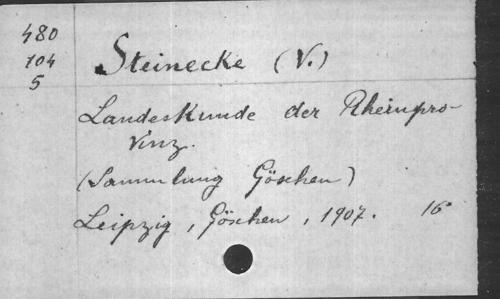 480
104
5
Steinecke (V.)
Landeskunde der Rheinpro-
vinz.
(Sammlung Göschen)
Leipzig, Göschen, 1907. 16°